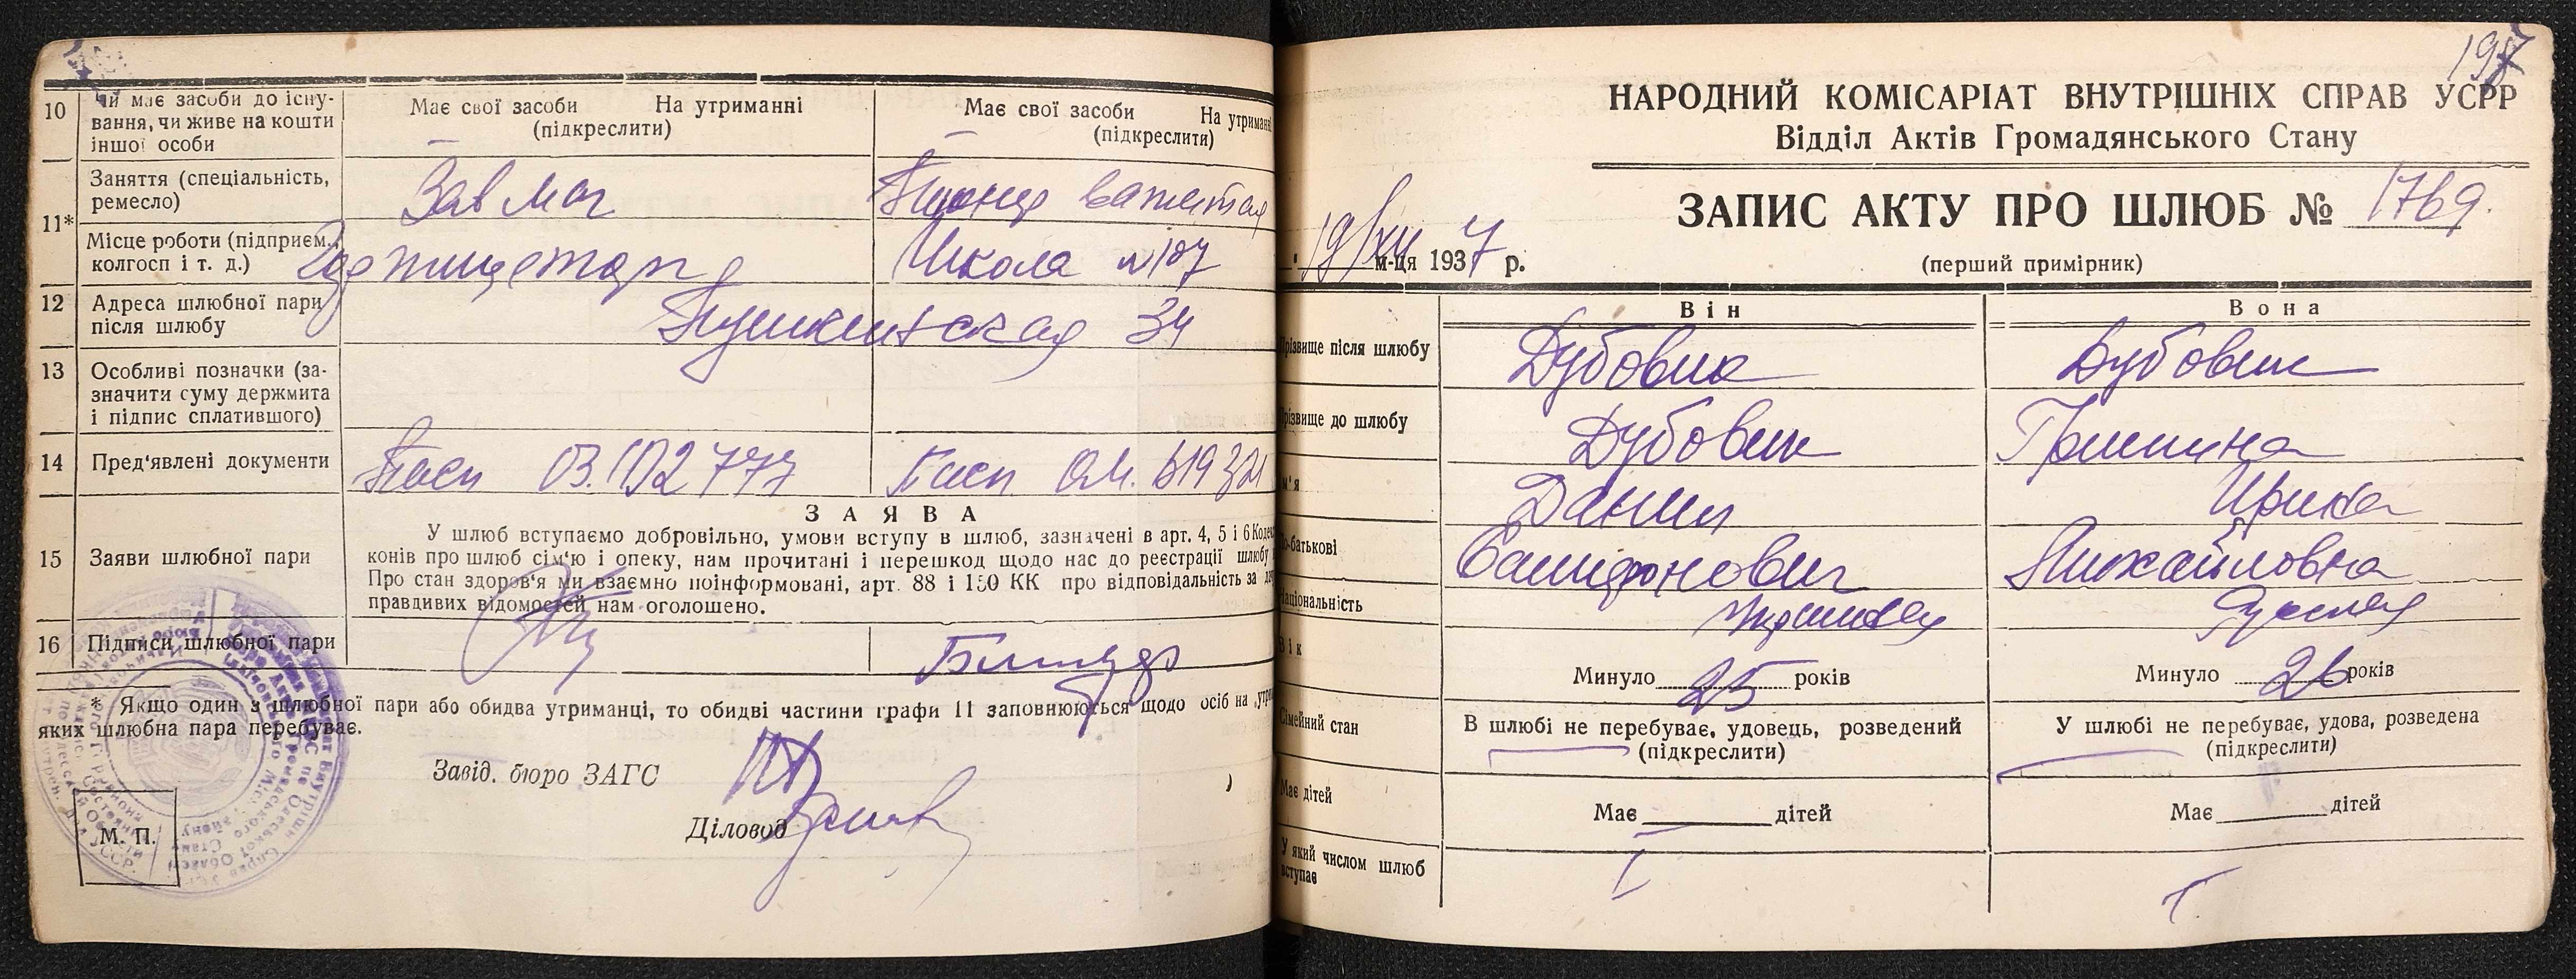 10 Чи має засоби до існу-
вання, чи живе на кошти
іншої особи
Має свої засоби На утриманні
(підкреслити)
Має свої засоби На утриманні
(підкреслити)
11* Заняття (спеціальність,
ремесло)
Зав маг
вожатая
Місце роботи (підприєм.,
колгосп і т. д.)
Школа №107
12 Адреса шлюбної пари
після шлюбу
Пушкинская 34
13 Особливі позначки (за-
значити суму держмита
і підпис сплатившого)
14 Пред'явлені документи
Пасп 03.102777
Пасп ОМ. 619321
15 Заяви шлюбної пари
ЗАЯВА
У шлюб вступаємо добровільно, умови вступу в шлюб, зазначені в арт. 4, 5 і 6 Кодек
конів про шлюб сім'ю і опеку, нам прочитані і перешкод щодо нас до реєстрації шлюбу
Про стан здоров'я ми взаємно поінформовані, арт. 88 і 150 КК про відповідальність за
правдивих відомостей нам оголошено.
16 Підписи шлюбної пари
* Якщо один з шлюбної пари або обидва утриманці, то обидві частини графи 11 заповнюються щодо осіб на утри
яких шлюбна пара перебуває.
Завід. бюро ЗАГС
Діловод
М. П.
197
НАРОДНИЙ КОМІСАРІАТ ВНУТРІШНІХ СПРАВ УСРР
Відділ Актів Громадянського Стану
ЗАПИС АКТУ ПРО ШЛЮБ № 1769.
19/XII м-ця 1937 р.
(перший примірник)
Він
Вона
різвище після шлюбу
Дубовик
Дубовик
різвище до шлюбу
Дубовик
Гришина
м'я
Данил
Ирина
о-батькові
Михайловна
аціональність
Русская
Вік
Минуло 25 років
Минуло 26 років
Сімейний стан
В шлюбі не перебуває, удовець, розведений
(підкреслити)
У шлюбі не перебуває, удова, розведена
(підкреслити)
Має дітей
Має дітей
Має дітей
У який числом шлюб
вступає
I
I